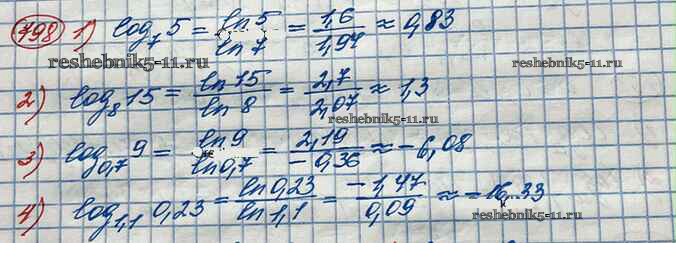 798 1) log₇ 5 = ln 5 / ln 7 = 1,6 / 1,94 ≈ 0,83
reshebnik5-11.ru reshebnik5-11.ru
2) log₈ 15 = ln 15 / ln 8 = 2,7 / 2,07 ≈ 1,3
reshebnik5-11.ru
3) log₀,₇ 9 = ln 9 / ln 0,7 = 2,19 / -0,36 ≈ -6,08
4) log₁,₁ 0,23 = ln 0,23 / ln 1,1 = -1,47 / 0,09 ≈ -16,33
reshebnik5-11.ru reshebnik5-11.ru